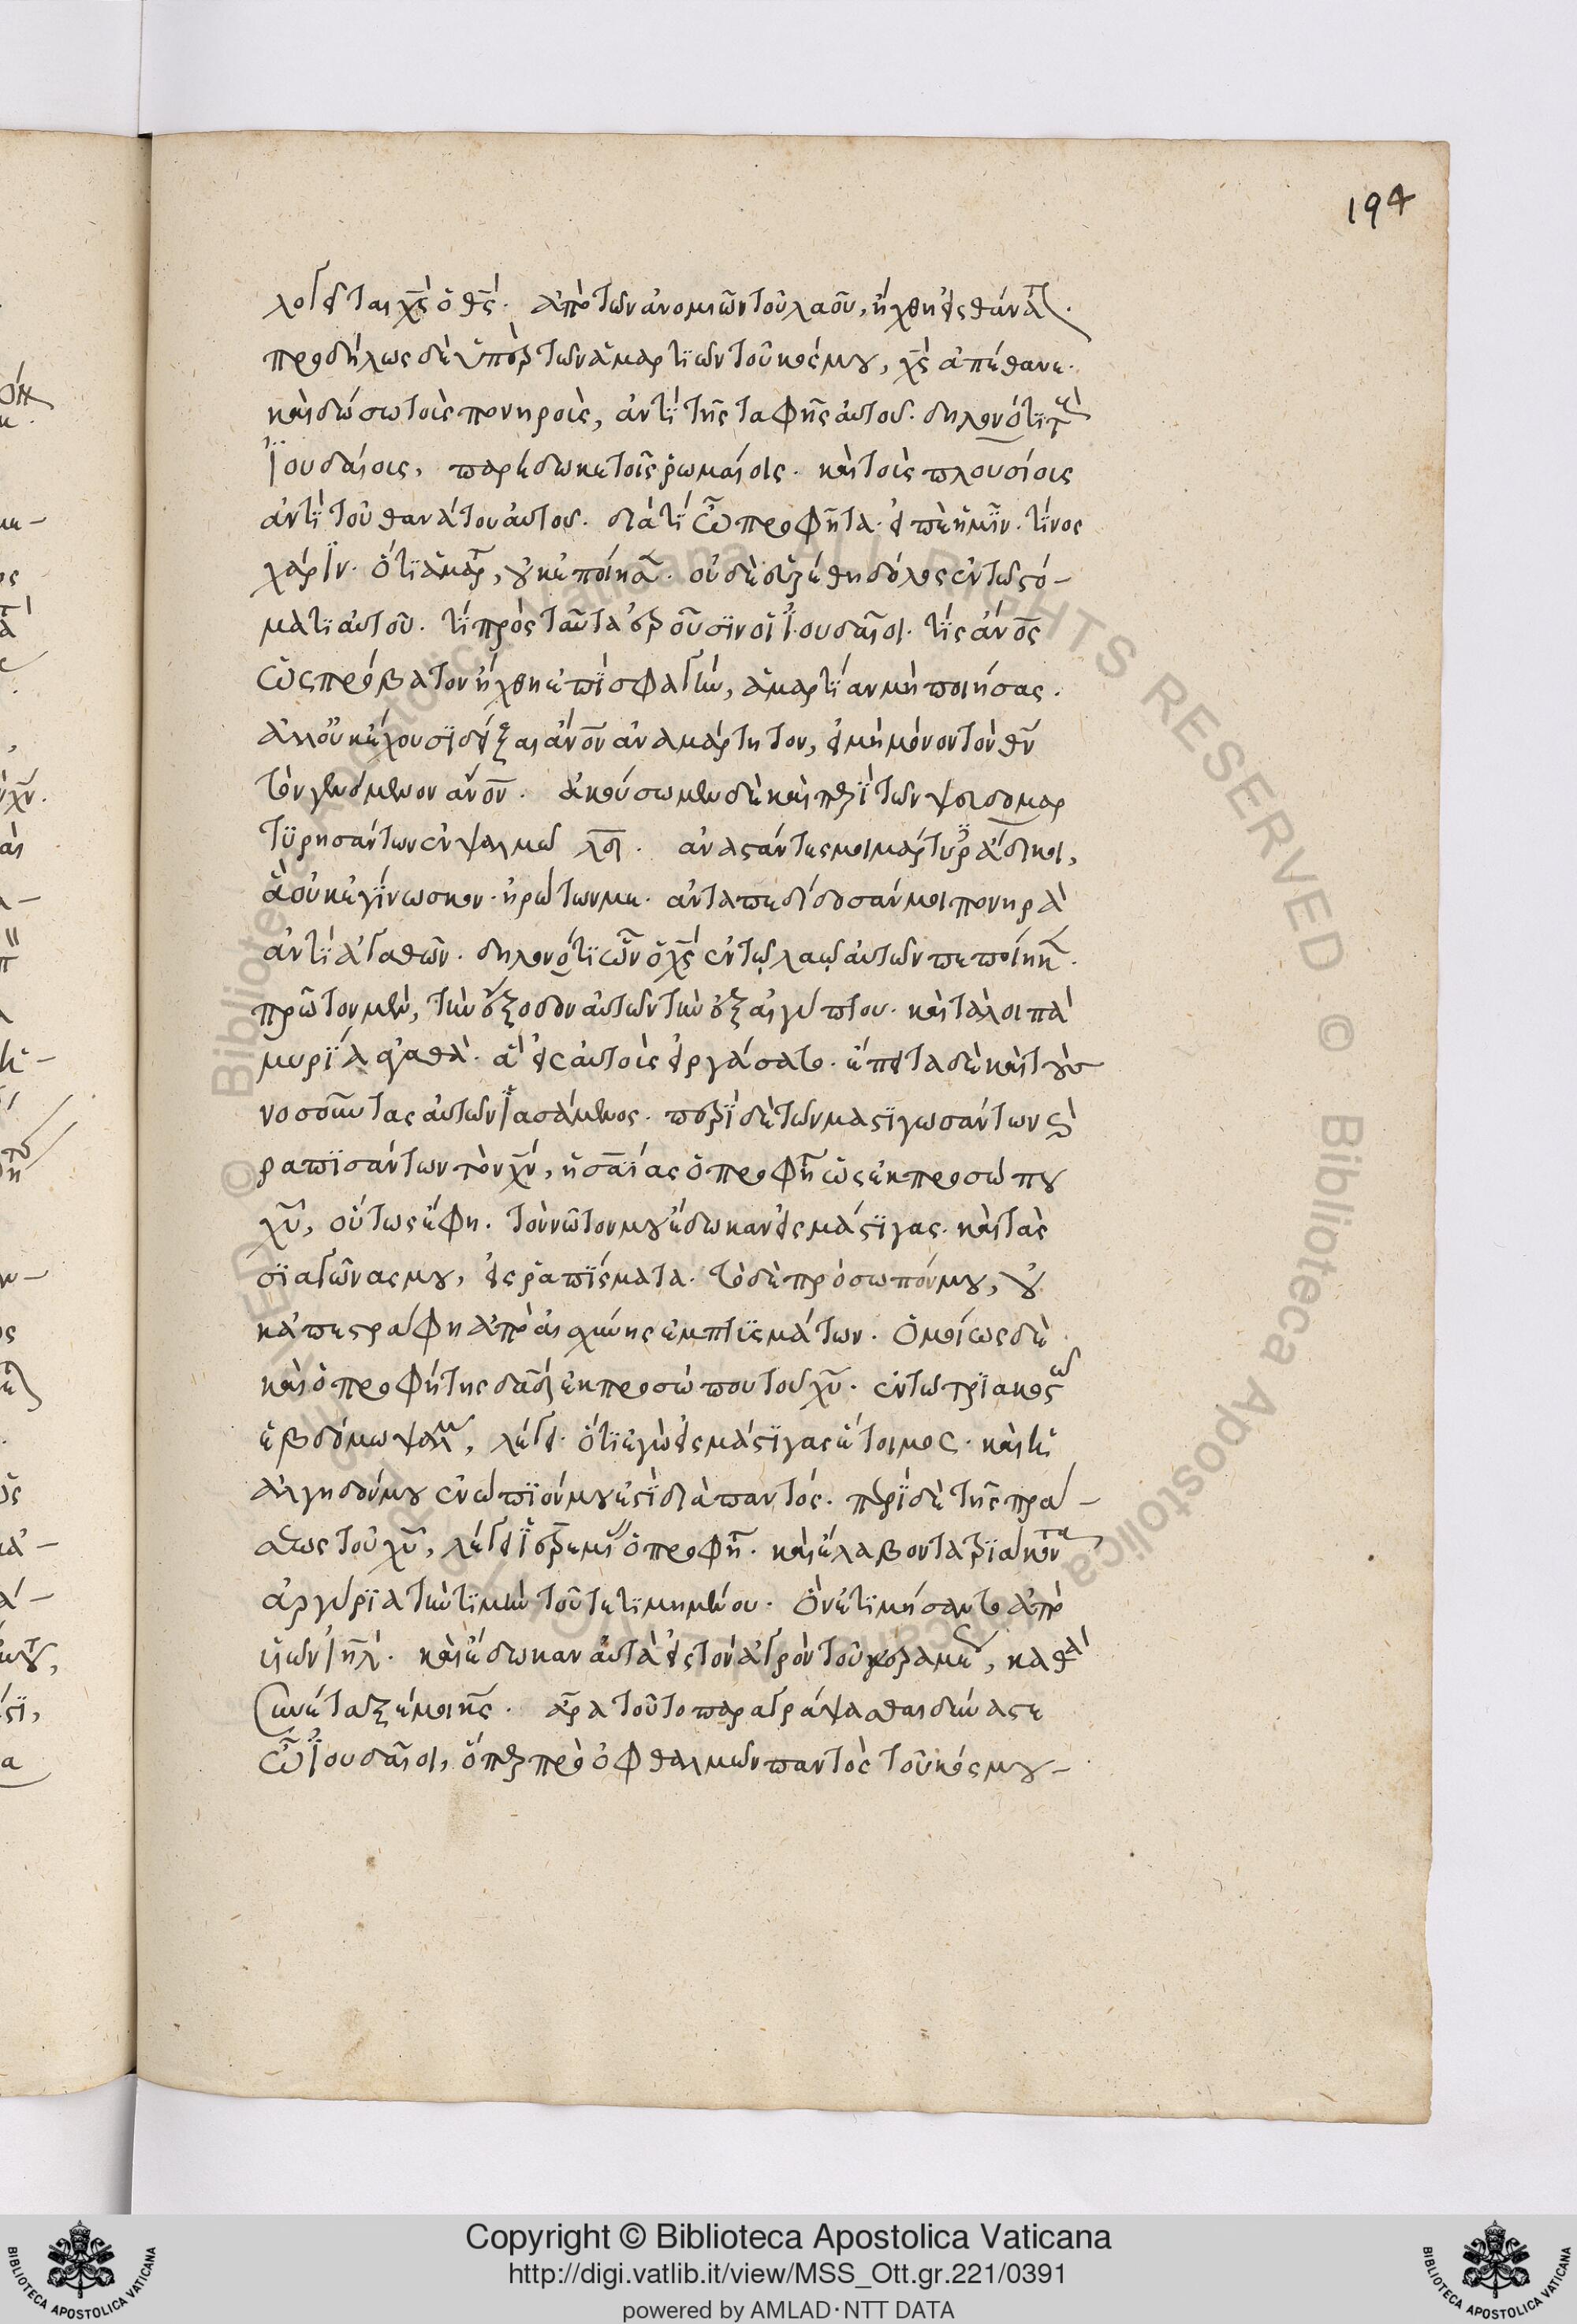 194
λογεῖται χς ὁ θς. ἀπὸ τῶν ἀνομιῶν τοῦ λαοῦ, ἤχθη εἰς θάνατ.
προδήλως δὲ ὑπὲρ τῶν ἁμαρτιῶν τοῦ κόσμου, χς ἀπέθανε.
καὶ δώσω τοὺς πονηροὺς, ἀντὶ τῆς ταφῆς αὐτοῦ. δηλονότι τοῖς
Ἰουδαίοις, παρέδωκε τοῖς ῥωμαίοις. καὶ τοὺς πλουσίους
ἀντὶ τοῦ θανάτου αὐτοῦ. διὰ τί ὦ προφῆτα. εἰπὲ ἡμῖν. τίνος
χάριν. ὅτι ἁμαρτ, οὐκ ἐποίησ. οὐδὲ εὑρέθη δόλος ἐν τῷ στό-
ματι αὐτοῦ. τί πρὸς ταῦτα ἐροῦσιν οἱ Ἰουδαῖοι. τίς ἄνος
ὡς πρόβατον ἤχθη ἐπὶ σφαγὴν, ἁμαρτίαν μὴ ποιήσας.
ἀλλ' οὐκ ἔχουσι δεῖξαι ἄνον ἀναμάρτητον, εἰ μὴ μόνον τὸν θν
τὸν γενόμενον ἄνον. ἀκούσωμεν δὲ καὶ περὶ τῶν ψευδομαρ
τυρησάντων ἐν ψαλμῷ λδ. ἀναστάντες μοι μάρτυρ ἄδικοι,
ἃ οὐκ ἐγίνωσκον. ἠρώτων με. ἀνταπεδίδοσάν μοι πονηρὰ
ἀντὶ ἀγαθῶν. δηλονότι ὧν ὁ χς ἐν τῷ λαῷ αὐτῶν πεποίηκ.
πρῶτον μὲν, τὴν ἔξοδον αὐτῶν τὴν ἐξ αἰγύπτου. καὶ τἄλοιπὰ
μυρία ἀγαθὰ. ἃ εἰς αὐτοὺς εἰργάσατο. ἔπειτα δὲ καὶ τοὺς
νοσοῦντας αὐτῶν ἰασάμενος. περὶ δὲ τῶν μαστιγωσάντων καὶ
ραπισάντων τὸν χν, ἡσαΐας ὁ προφή ὡς ἐκ προσώπου
χυ, οὕτως ἔφη. τὸν νῶτον μου ἔδωκαν εἰς μάστιγας. καὶ τὰς
σιαγῶνας μου, εἰς ῥαπίσματα. τὸ δὲ πρόσωπόν μου, οὐ
κ ἀπεστράφη ἀπὸ αἰσχύνης ἐμπτισμάτων. ὁμοίως δὲ
καὶ ὁ προφήτης δαδ ἐκ προσώπου τοῦ χυ. ἐν τῷ τριακοστῷ
ἑβδόμω ψαλμ, λέγει. ὅτι ἐγὼ εἰς μάστιγας ἕτοιμος. καὶ ἡ
ἀλγηδόν μου ἐνώπιόν μου ἐστὶ διὰ παντός. περὶ δὲ τῆς πρά-
σεως τοῦ χυ, λέγει ἱερεμί ὁ προφή. καὶ ἔλαβον τὰ τριάκοντα
ἀργύρια τὴν τιμὴν τοῦ τετιμημένου. ὃν ἐτιμήσαντο ἀπὸ
υἱῶν ἰηλ. καὶ ἔδωκαν αὐτὰ εἰς τὸν ἀγρὸν τοῦ κεραμέ, καθὰ
συνέταξέ μοι κς. ἆρα τοῦτο παραγράψασθαι δύνασθε
ὦ Ἰουδαῖοι, ὅπερ πρὸ ὀφθαλμῶν παντὸς τοῦ κόσμου-
Copyright © Biblioteca Apostolica Vaticana
http://digi.vatlib.it/view/MSS_Ott.gr.221/0391
powered by AMLAD·NTT DATA